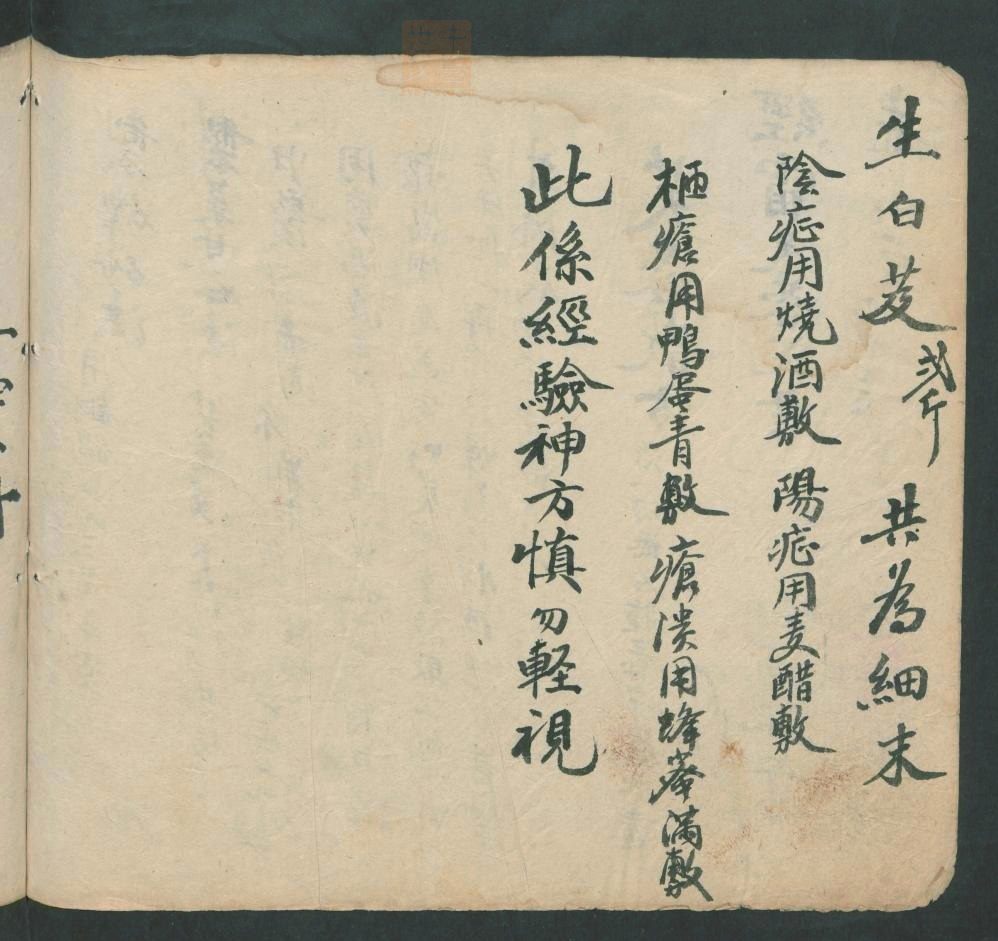 生白芨 弍斤 共為細末
陰症用燒酒敷 陽症用麦醋敷
瘡用鴨蛋青敷 瘡潰用蜂蜜滿敷
此係經驗神方慎勿軽視